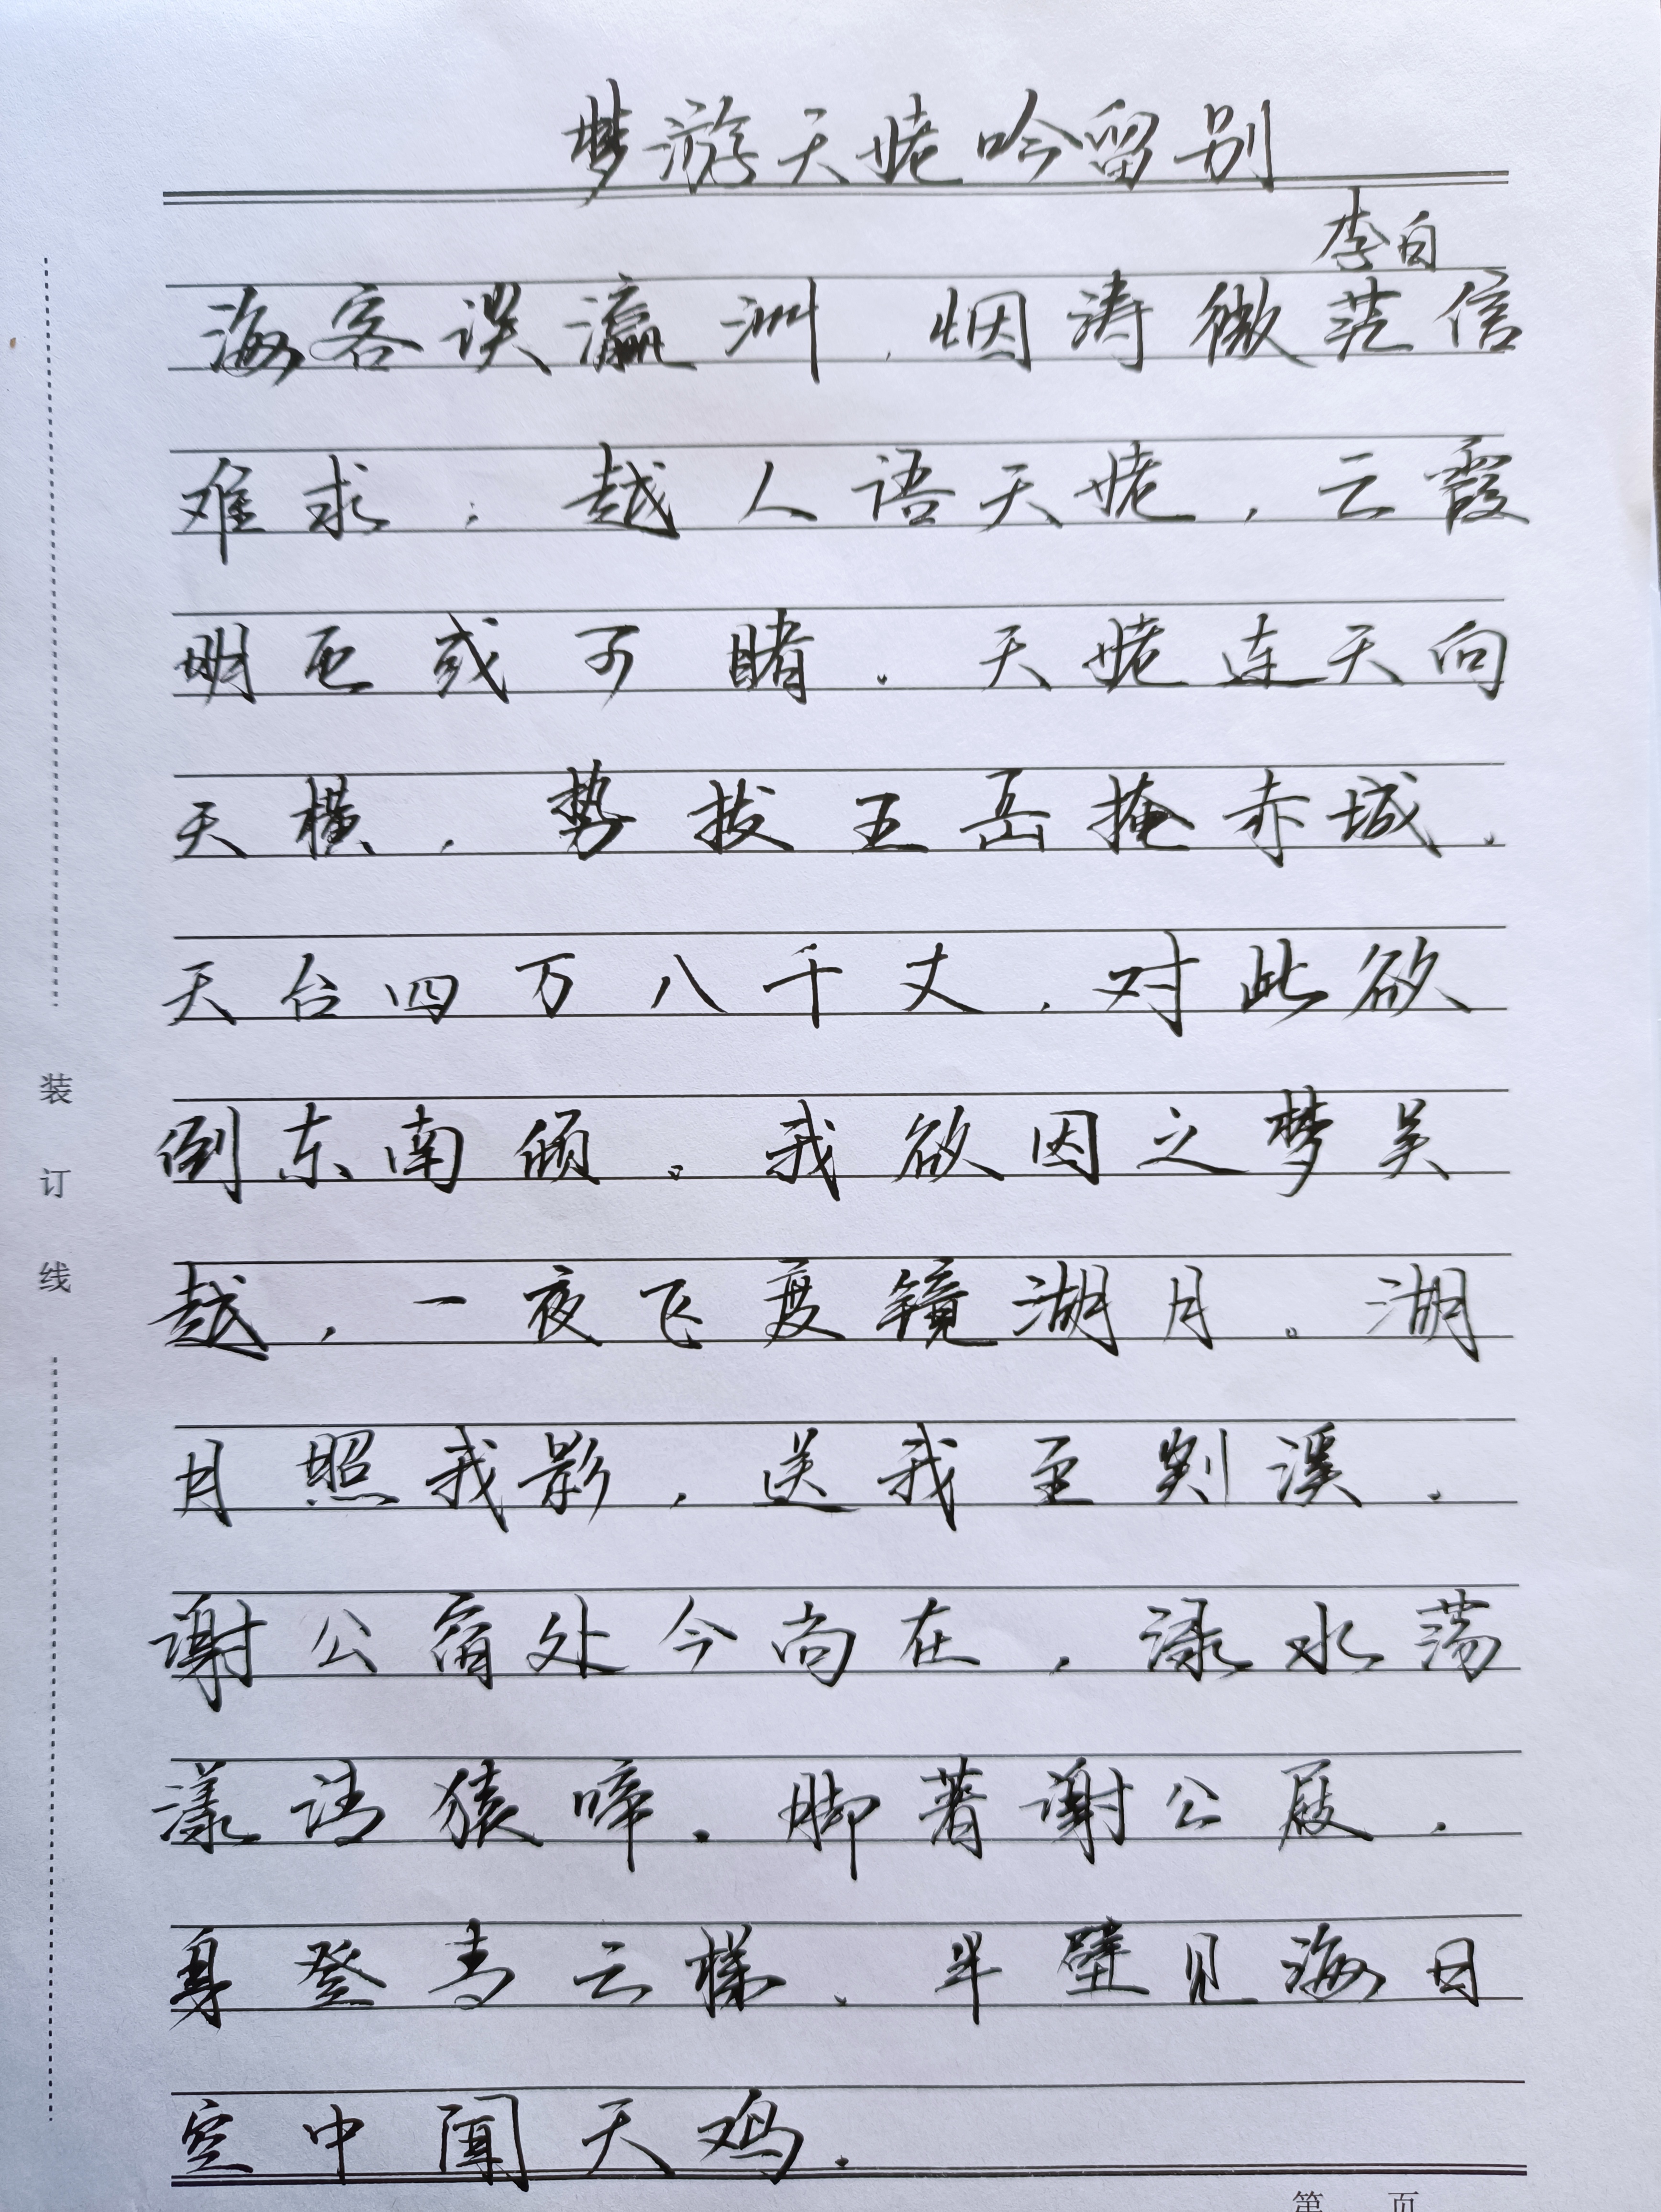 梦游天姥吟留别
李白
海客谈瀛洲,烟涛微茫信
难求;越人语天姥,云霞
明灭或可睹。天姥连天向
天横,势拔五岳掩赤城。
天台四万八千丈,对此欲
倒东南倾。我欲因之梦吴
越,一夜飞度镜湖月。湖
月照我影,送我至剡溪。
谢公宿处今尚在,渌水荡
漾清猿啼。脚著谢公屐,
身登青云梯。半壁见海日
空中闻天鸡。
装
订
线
第 页